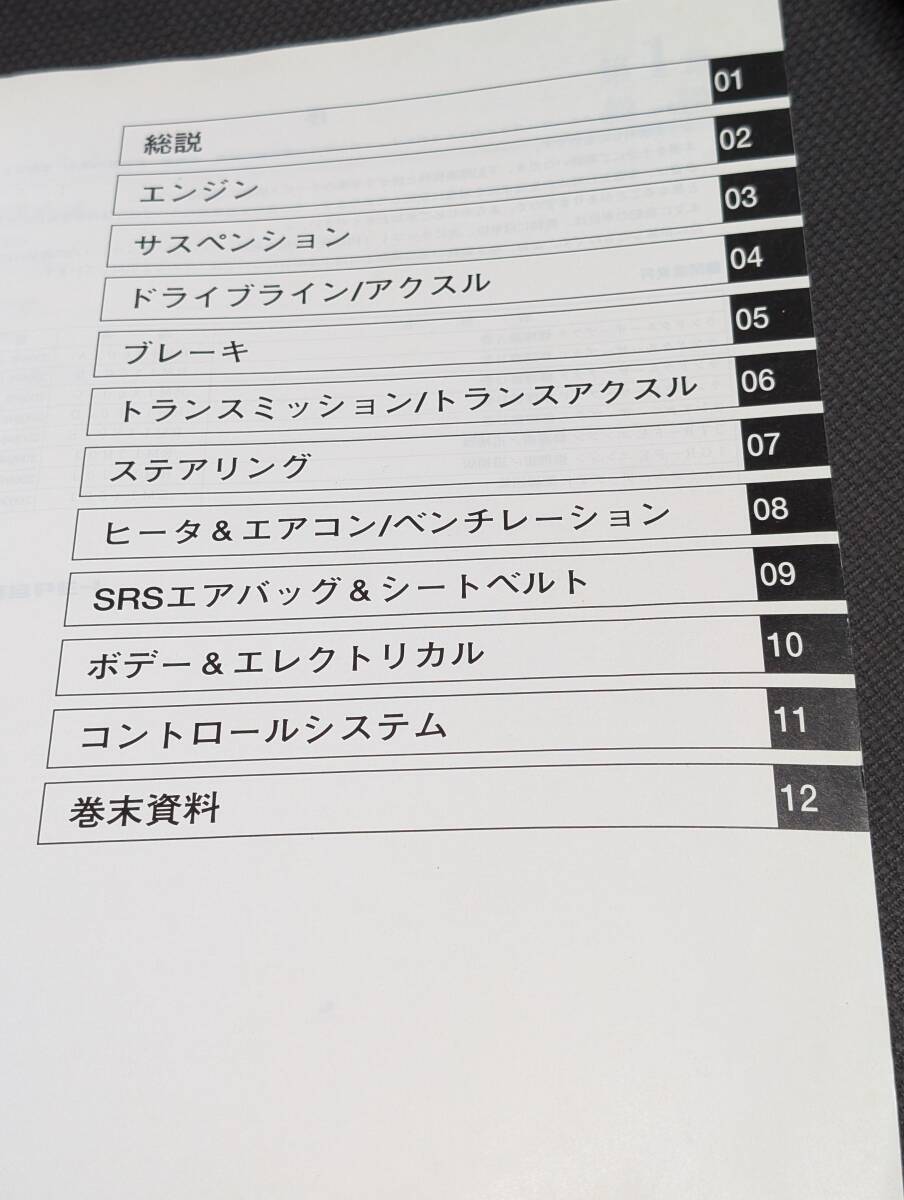 総説 01
エンジン 02
サスペンション 03
ドライブライン/アクスル 04
ブレーキ 05
トランスミッション/トランスアクスル 06
ステアリング 07
ヒータ&エアコン/ベンチレーション 08
SRSエアバッグ&シートベルト 09
ボデー&エレクトリカル 10
コントロールシステム 11
巻末資料 12